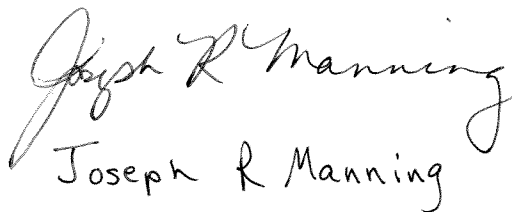 Joseph R Manning
Joseph R Manning